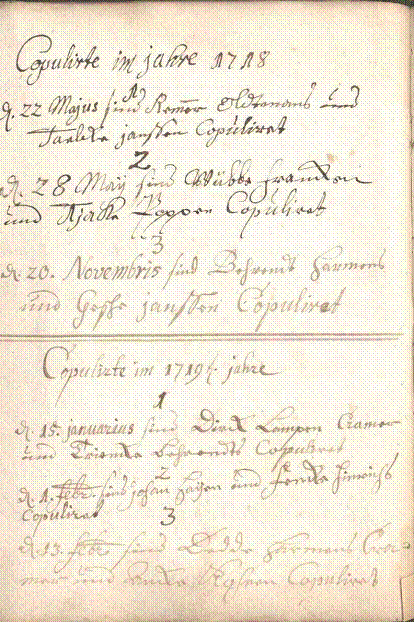 Copulirte im jahre 1718
1
d. 22 Majus sind Remmer Oltmans und
Taelcke janssen Copuliret
2
d. 28 May sind Wübbe Francken
und Tjacke Poppen Copuliret
3
d. 20. Novembris sind Behrendt Harmens
und Gesche janssen Copuliret
Copulirte im 1719t. jahre
1
d. 15. januarius sind Dirck Lampen Cramer
und Trienke Behrendts Copuliret
2
d. 1. Febr. sind johan Hayen und Fencke Hinrichs
Copuliret
3
d. 13. Febr. sind Harmens Cra-
mer und Copuliret